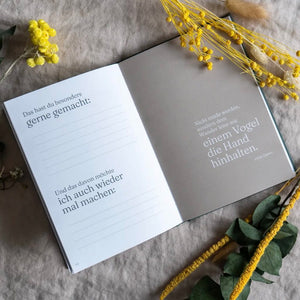 Das hast du besonders
gerne gemacht:
Und das davon möchte
ich auch wieder
mal machen:
Nicht müde werden,
sondern dem
Wunder leise wie
einem Vogel
die Hand
hinhalten.